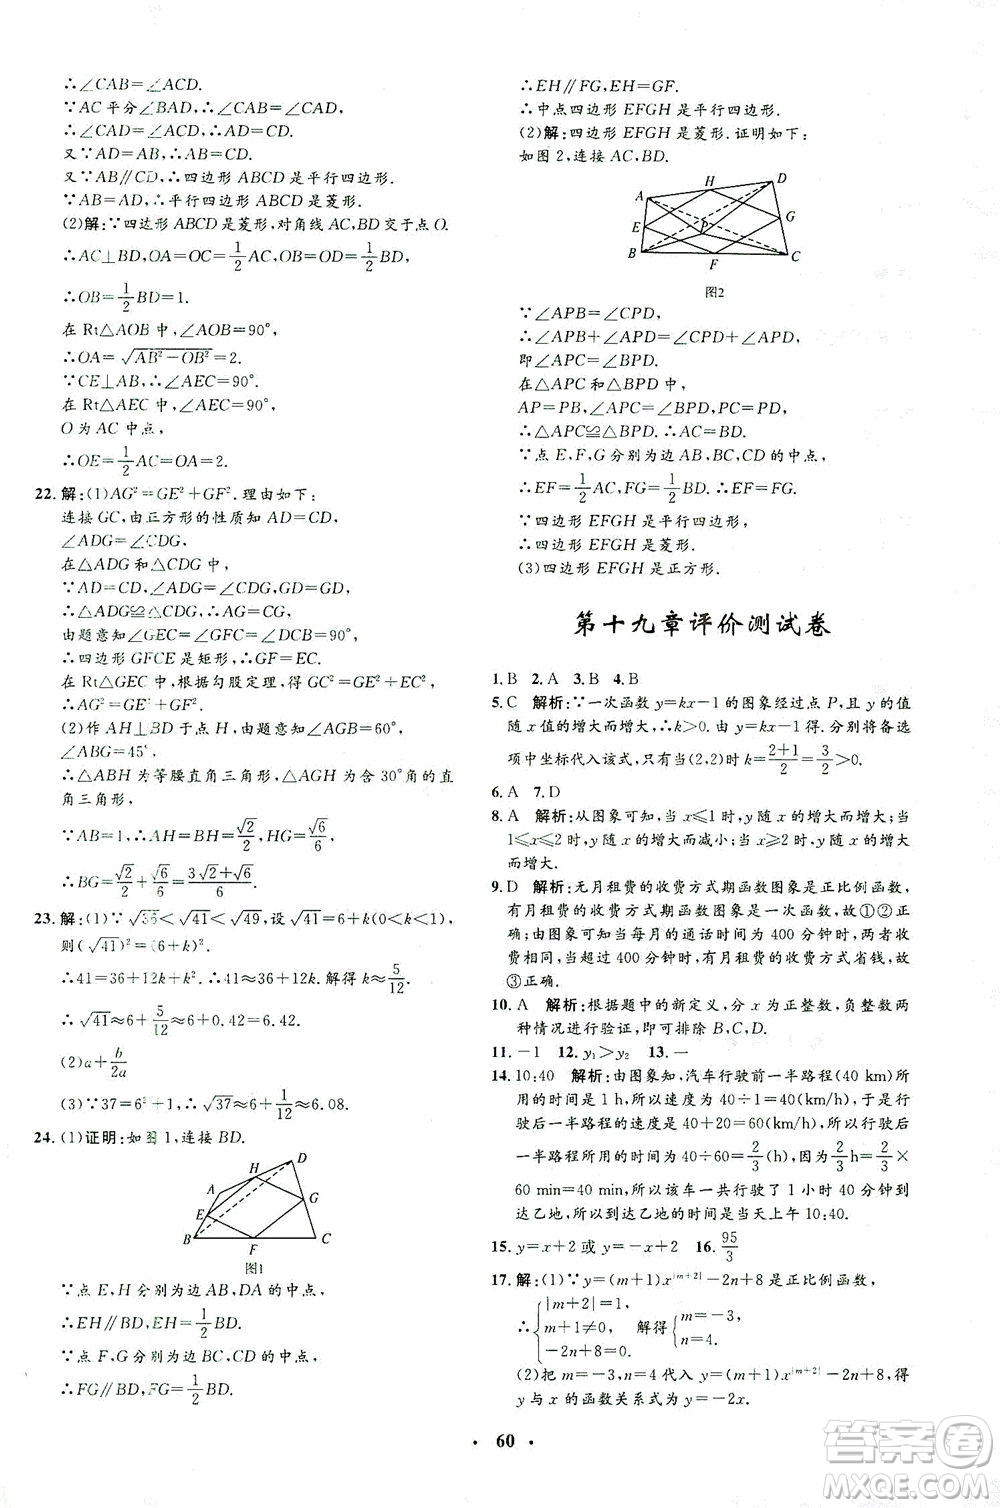 ∴∠CAB=∠ACD.
∵AC平分∠BAD,∴∠CAB=∠CAD,
∴∠CAD=∠ACD,∴AD=CD.
又∵AD=AB,∴AB=CD.
又∵AB∥CD,∴四边形ABCD是平行四边形.
∵AB=AD,∴平行四边形ABCD是菱形.
(2)解:∵四边形ABCD是菱形,对角线AC,BD交于点O.
∴AC⊥BD,OA=OC=1/2AC,OB=OD=1/2BD,
∴OB=1/2BD=1.
在Rt△AOB中,∠AOB=90°,
∴OA=√(AB²-OB²)=2.
∵CE⊥AB,∴∠AEC=90°.
在Rt△AEC中,∠AEC=90°,
O为AC中点,
∴OE=1/2AC=OA=2.
22.解:(1)AG²=GE²+GF².理由如下:
连接GC,由正方形的性质知AD=CD,
∠ADG=∠CDG,
在△ADG和△CDG中,
∵AD=CD,∠ADG=∠CDG,GD=GD,
∴△ADG≌△CDG,∴AG=CG.
由题意知∠GEC=∠GFC=∠DCB=90°,
∴四边形GFCE是矩形,∴GF=EC.
在Rt△GEC中,根据勾股定理,得GC²=GE²+EC²,
∴AG²=GE²+GF².
(2)作AH⊥BD于点H,由题意知∠AGB=60°,
∠ABG=45°,
∴△ABH为等腰直角三角形,△AGH为含30°角的直
角三角形,
∵AB=1,∴AH=BH=√2/2,HG=√6/6,
∴BG=√2/2+√6/6=(3√2+√6)/6.
23.解:(1)∵√36<√41<√49,设√41=6+k(0<k<1),
则(√41)²=(6+k)²,
∴41=36+12k+k²,∴41≈36+12k.解得k≈5/12,
∴√41≈6+5/12≈6+0.42=6.42.
(2)a+b/2a
(3)∵37=6²+1,∴√37≈6+1/12≈6.08.
24.(1)证明:如图1,连接BD.
A
B
C
D
E
F
G
H
图1
∵点E,H分别为边AB,DA的中点,
∴EH∥BD,EH=1/2BD,
∵点F,G分别为边BC,CD的中点,
∴FG∥BD,FG=1/2BD,
∴EH∥FG,EH=GF.
∴中点四边形EFGH是平行四边形.
(2)解:四边形EFGH是菱形.证明如下:
如图2,连接AC,BD.
A
B
C
D
E
F
G
H
P
图2
∵∠APB=∠CPD,
∴∠APB+∠APD=∠CPD+∠APD,
即∠APC=∠BPD.
在△APC和△BPD中,
AP=PB,∠APC=∠BPD,PC=PD,
∴△APC≌△BPD.∴AC=BD.
∵点E,F,G分别为AB,BC,CD的中点,
∴EF=1/2AC,FG=1/2BD.
∵四边形EFGH是平行四边形,
∴四边形EFGH是菱形.
(3)四边形EFGH是正方形.
第十九章评价测试卷
1.B 2.A 3.B 4.B
5.C 解析:∵一次函数y=kx-1的图象经过点P,且y的值
随x值的增大而增大,∴k>0.由y=kx-1得.分别将备选
项中坐标代入该式,只有(2,2)时k=(2+1)/2=3/2>0.
6.A 7.D
8.A 解析:从图象可知,当x≤1时,y随x的增大而增大;当
1≤x≤2时,y随x的增大而减小;当x≥2时,y随x的增大
而增大.
9.D 解析:无月租费的收费方式期函数图象是正比例函数,
有月租费的收费方式期函数图象是一次函数,故①②正
确,由图象可知当每月的通话时间为400分钟时,两者收
费相同,超过400分钟时,有月租费的收费方式省钱,故
故③正确.
10.A 解析:根据题中的新定义,分x为正整数,负整数两
种情况进行验证,即可排除B,C,D.
11.-1 12.y₁>y₂ 13.一
14.10:40 解析:由图象知,汽车行驶前一半路程(40 km)所
用的时间是1 h,所以速度为40÷1=40(km/h),于是
行驶后一半路程的速度是40+20=60(km/h),所以后
一半路程所用的时间为40÷60=2/3(h),因为2/3h=2/3×
60 min=40 min,所以该车一共行驶了1小时40分钟到
达乙地,所以到达乙地的时间是当天上午10:40.
15.y=x+2或y=-x+2 16.95/3
17.解:(1)∵y=(m+1)x^|m+2|-2n+8是正比例函数,
∴{|m+2|=1, m+1≠0, -2n+8=0. 解得{m=-3, n=4.
(2)把m=-3,n=4代入y=(m+1)x^|m+2|-2n+8,得
y与x的函数关系式为y=-2x.
· 60 ·
答案圈
MXQE.COM